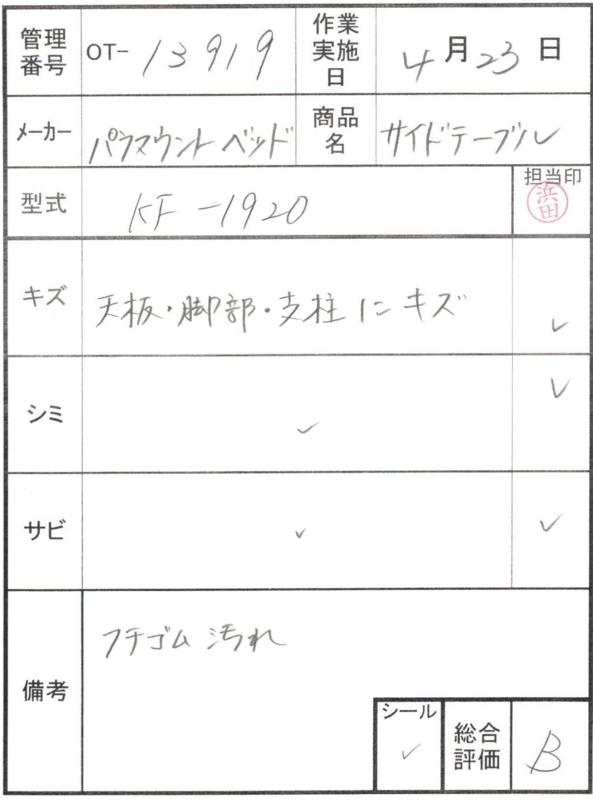 管理番号 OT- 13919 作業実施日 4月23日
メーカー パラマウントベッド 商品名 サイドテーブル
型式 KF-1920 担当印 浜田
キズ 天板・脚部・支柱にキズ ✓
シミ ✓ ✓
サビ ✓ ✓
備考 フチゴム汚れ
シール ✓ 総合評価 B